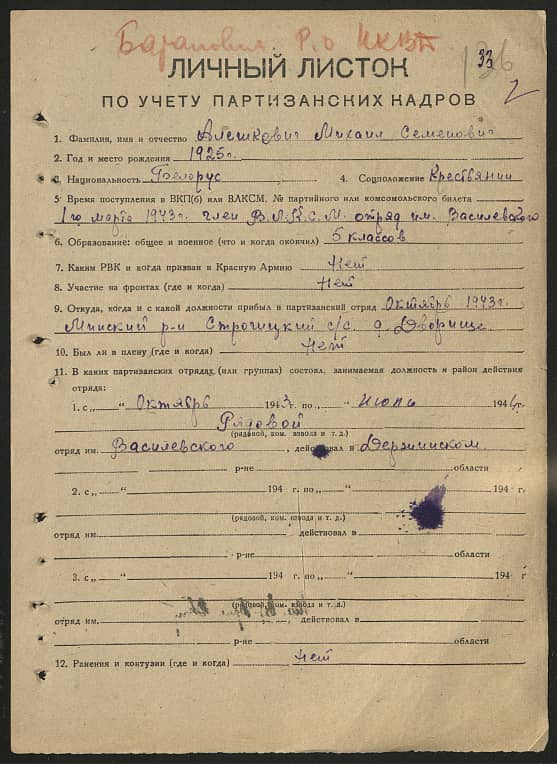 Баранович. Р.о НКВД
33
136
ЛИЧНЫЙ ЛИСТОК
ПО УЧЕТУ ПАРТИЗАНСКИХ КАДРОВ
1. Фамилия, имя и отчество Алешкович Михаил Семенович
2. Год и место рождения 1925г.
3. Национальность Белорус 4. Соцположение Крестьянин
5. Время поступления в ВКП(б) или ВЛКСМ, № партийного или комсомольского билета
1го марта 1943г. член В.Л.К.С.М. отряд им. Василевского
6. Образование: общее и военное (что и когда окончил) 5 классов
7. Каким РВК и когда призван в Красную Армию Нет
8. Участие на фронтах (где и когда) Нет
9. Откуда, когда и с какой должности прибыл в партизанский отряд Октябрь 1943г.
Минский р-н с/с. д. Дворище
10. Был ли в плену (где и когда) Нет
11. В каких партизанских отрядах (или группах) состоял, занимаемая должность и район действия
отряда:
1. с „ “ Октябрь 1943 г. по „ “ Июль 1944 г.
Рядовой
(рядовой, ком. взвода и т. д.)
отряд им. Василевского, действовал в Держинском
р-не области
2. с „ “ 194 г. по „ “ 194 г.
(рядовой, ком. взвода и т. д.)
отряд им. действовал в
р-не области
3. с „ “ 194 г. по „ “ 194 г
(рядовой, ком. взвода и т. д.)
отряд им. , действовал в
р-не области
12. Ранения и контузии (где и когда) Нет